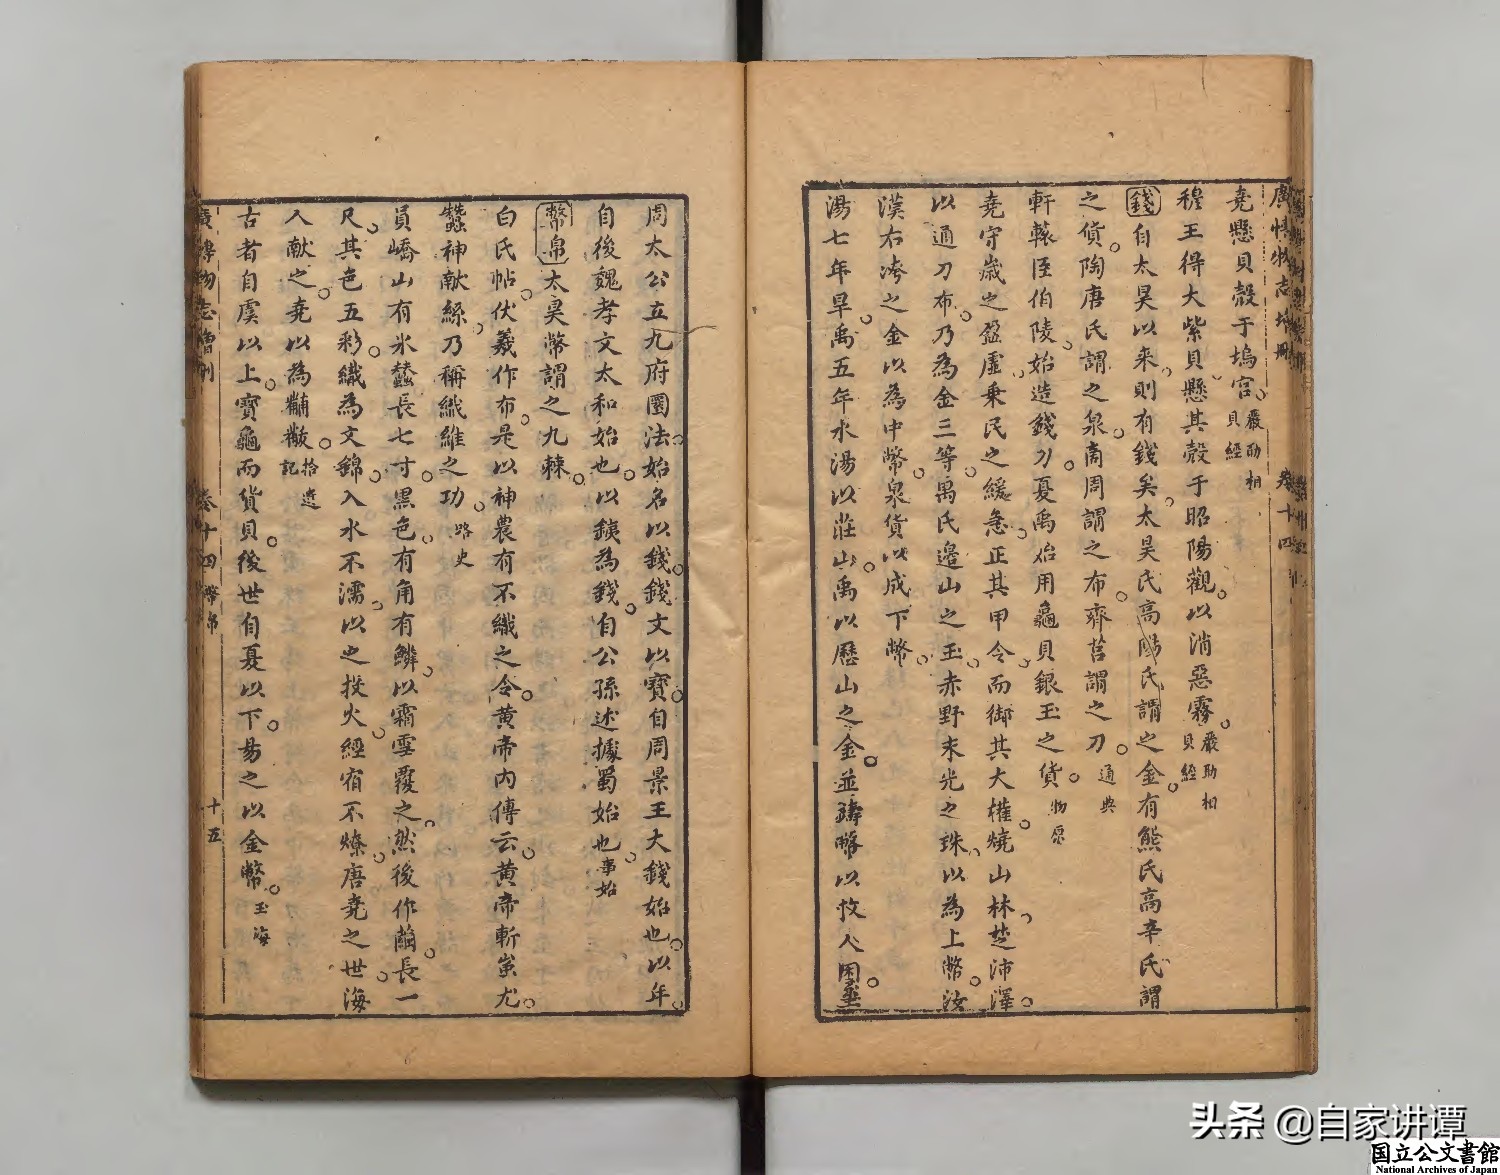 廣博物志增刪 卷十四
堯懸貝殼于塢宮嚴助相貝經
穆王得大紫貝懸其殼于昭陽觀以消惡霧嚴助相貝經
錢自太昊以來則有錢矣太昊氏高陽氏謂之金有熊氏高辛氏謂
之貨陶唐氏謂之泉商周謂之布齊莒謂之刀通典
軒轅臣伯陵始造錢刀夏禹始用龜貝銀玉之貨物原
堯守歲之盈虛乗民之緩急正其甲令而御其大權燒山林楚沛澤
以通刀布乃為金三等禹氏邉山之玉赤野末光之珠以為上幣汝
漢右洿之金以為中幣泉貨以成下幣
湯七年旱禹五年水湯以莊山禹以歷山之金並鑄幣以救人困
周太公立九府圜法始名以錢錢文以寶自周景王大錢始也以年
自後魏孝文太和始也以鐵為錢自公孫述據蜀始也事始
幣帛太昊幣謂之九棘
白氏帖伏羲作布是以神農有不織之令黄帝内傳云黄帝斬蚩尤
蠶神献絲乃稱織維之功路史
員嶠山有氷蠶長七寸黒色有角有鱗以霜雪覆之然後作繭長一
尺其色五彩織為文錦入水不濡以之投火經宿不燎唐堯之世海
入献之堯以為黼黻拾遺記
古者自虞以上寶龜而貨貝後世自夏以下易之以金幣玉海
廣博物志增刪 卷十四 幣帛 十五
头条 @自家讲谭
国立公文書館
National Archives of Japan